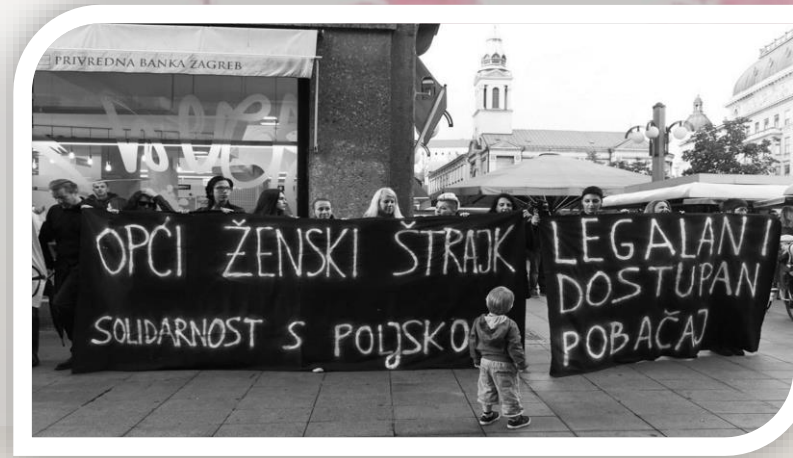 PRIVREDNA BANKA ZAGREB
OPĆI ŽENSKI ŠTRAJK
SOLIDARNOST S POLJSKO
LEGALAN I
DOSTUPAN
POBAČAJ